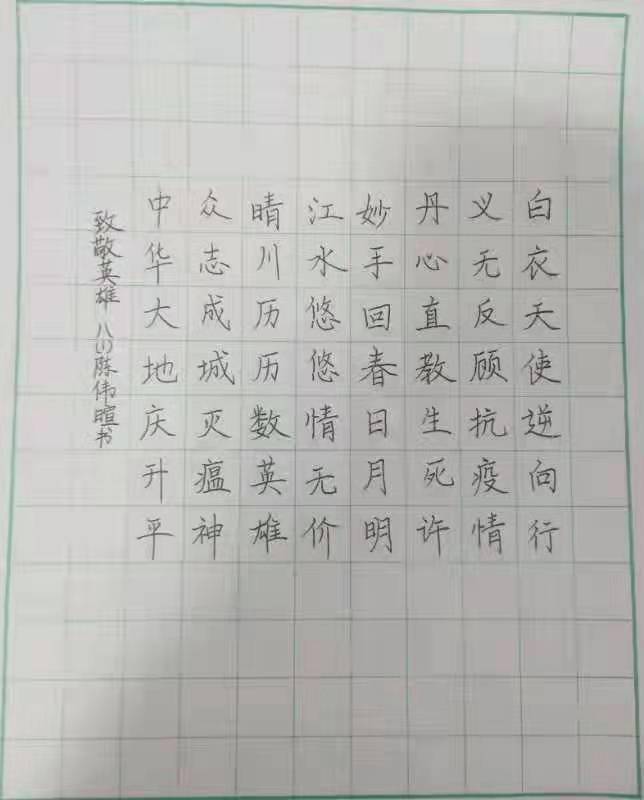 白衣天使逆向行
义无反顾抗疫情
丹心直教生死许
妙手回春日月明
江水悠悠情无价
晴川历历数英雄
众志成城灭瘟神
中华大地庆升平
致敬英雄 八(1)陈伟暄书